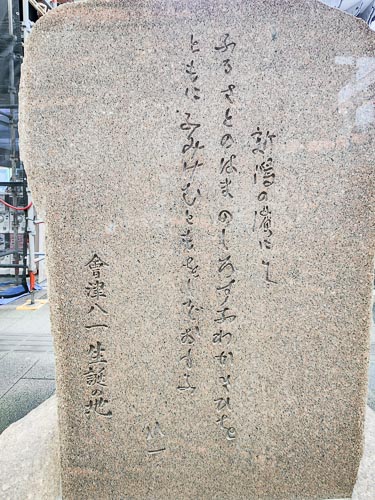 新潟の濱にて
ふるさとのはまのしろすなわかきひを
ともにふみけむともをしぞおもふ
八一
會津八一生誕の地